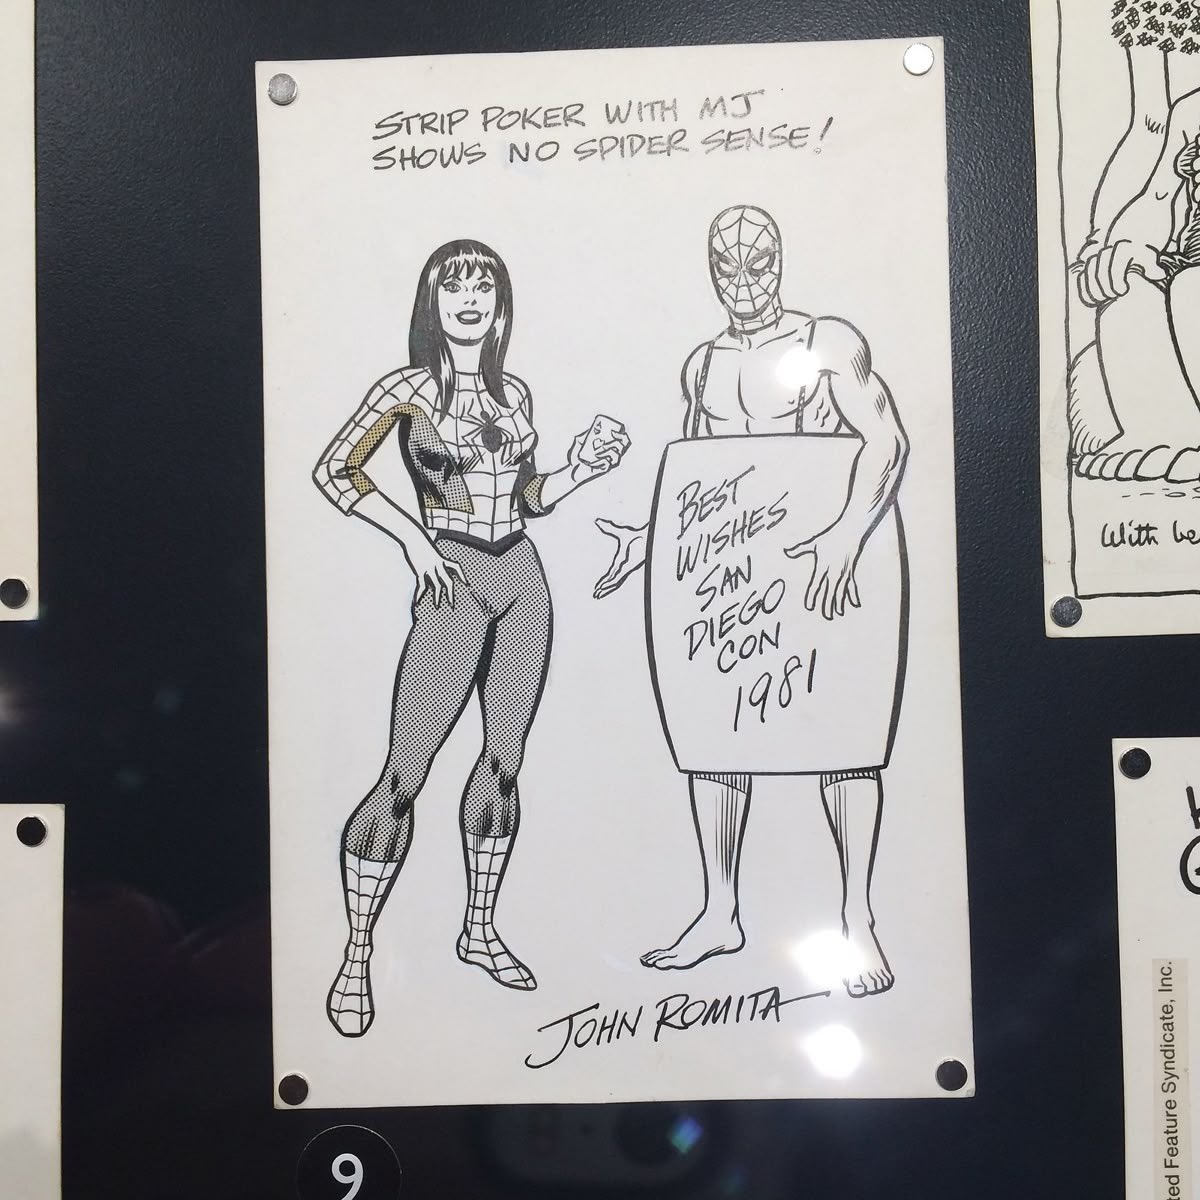 STRIP POKER WITH MJ
SHOWS NO SPIDER SENSE!
BEST
WISHES
SAN
DIEGO
CON
1981
JOHN ROMITA
With
Feature Syndicate, Inc.
9